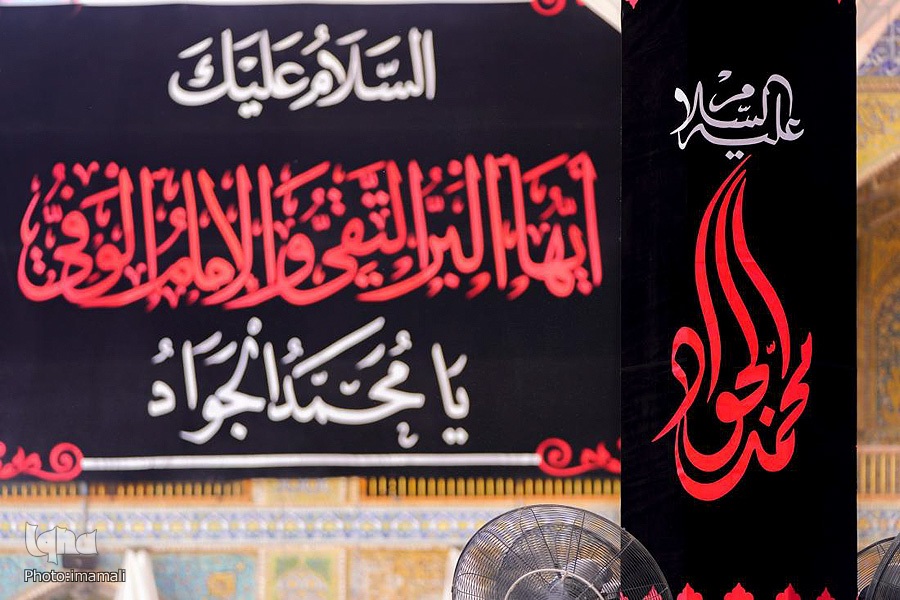 السَّلَامُ عَلَيْكَ
أَيُّهَا الْبَرُّ التَّقِيُّ وَالإِمَامُ الْوَفِيُّ
يَا مُحَمَّدُ الْجَوَادُ
عليه السلام
محمد الجواد
iqna
Photo:imamali